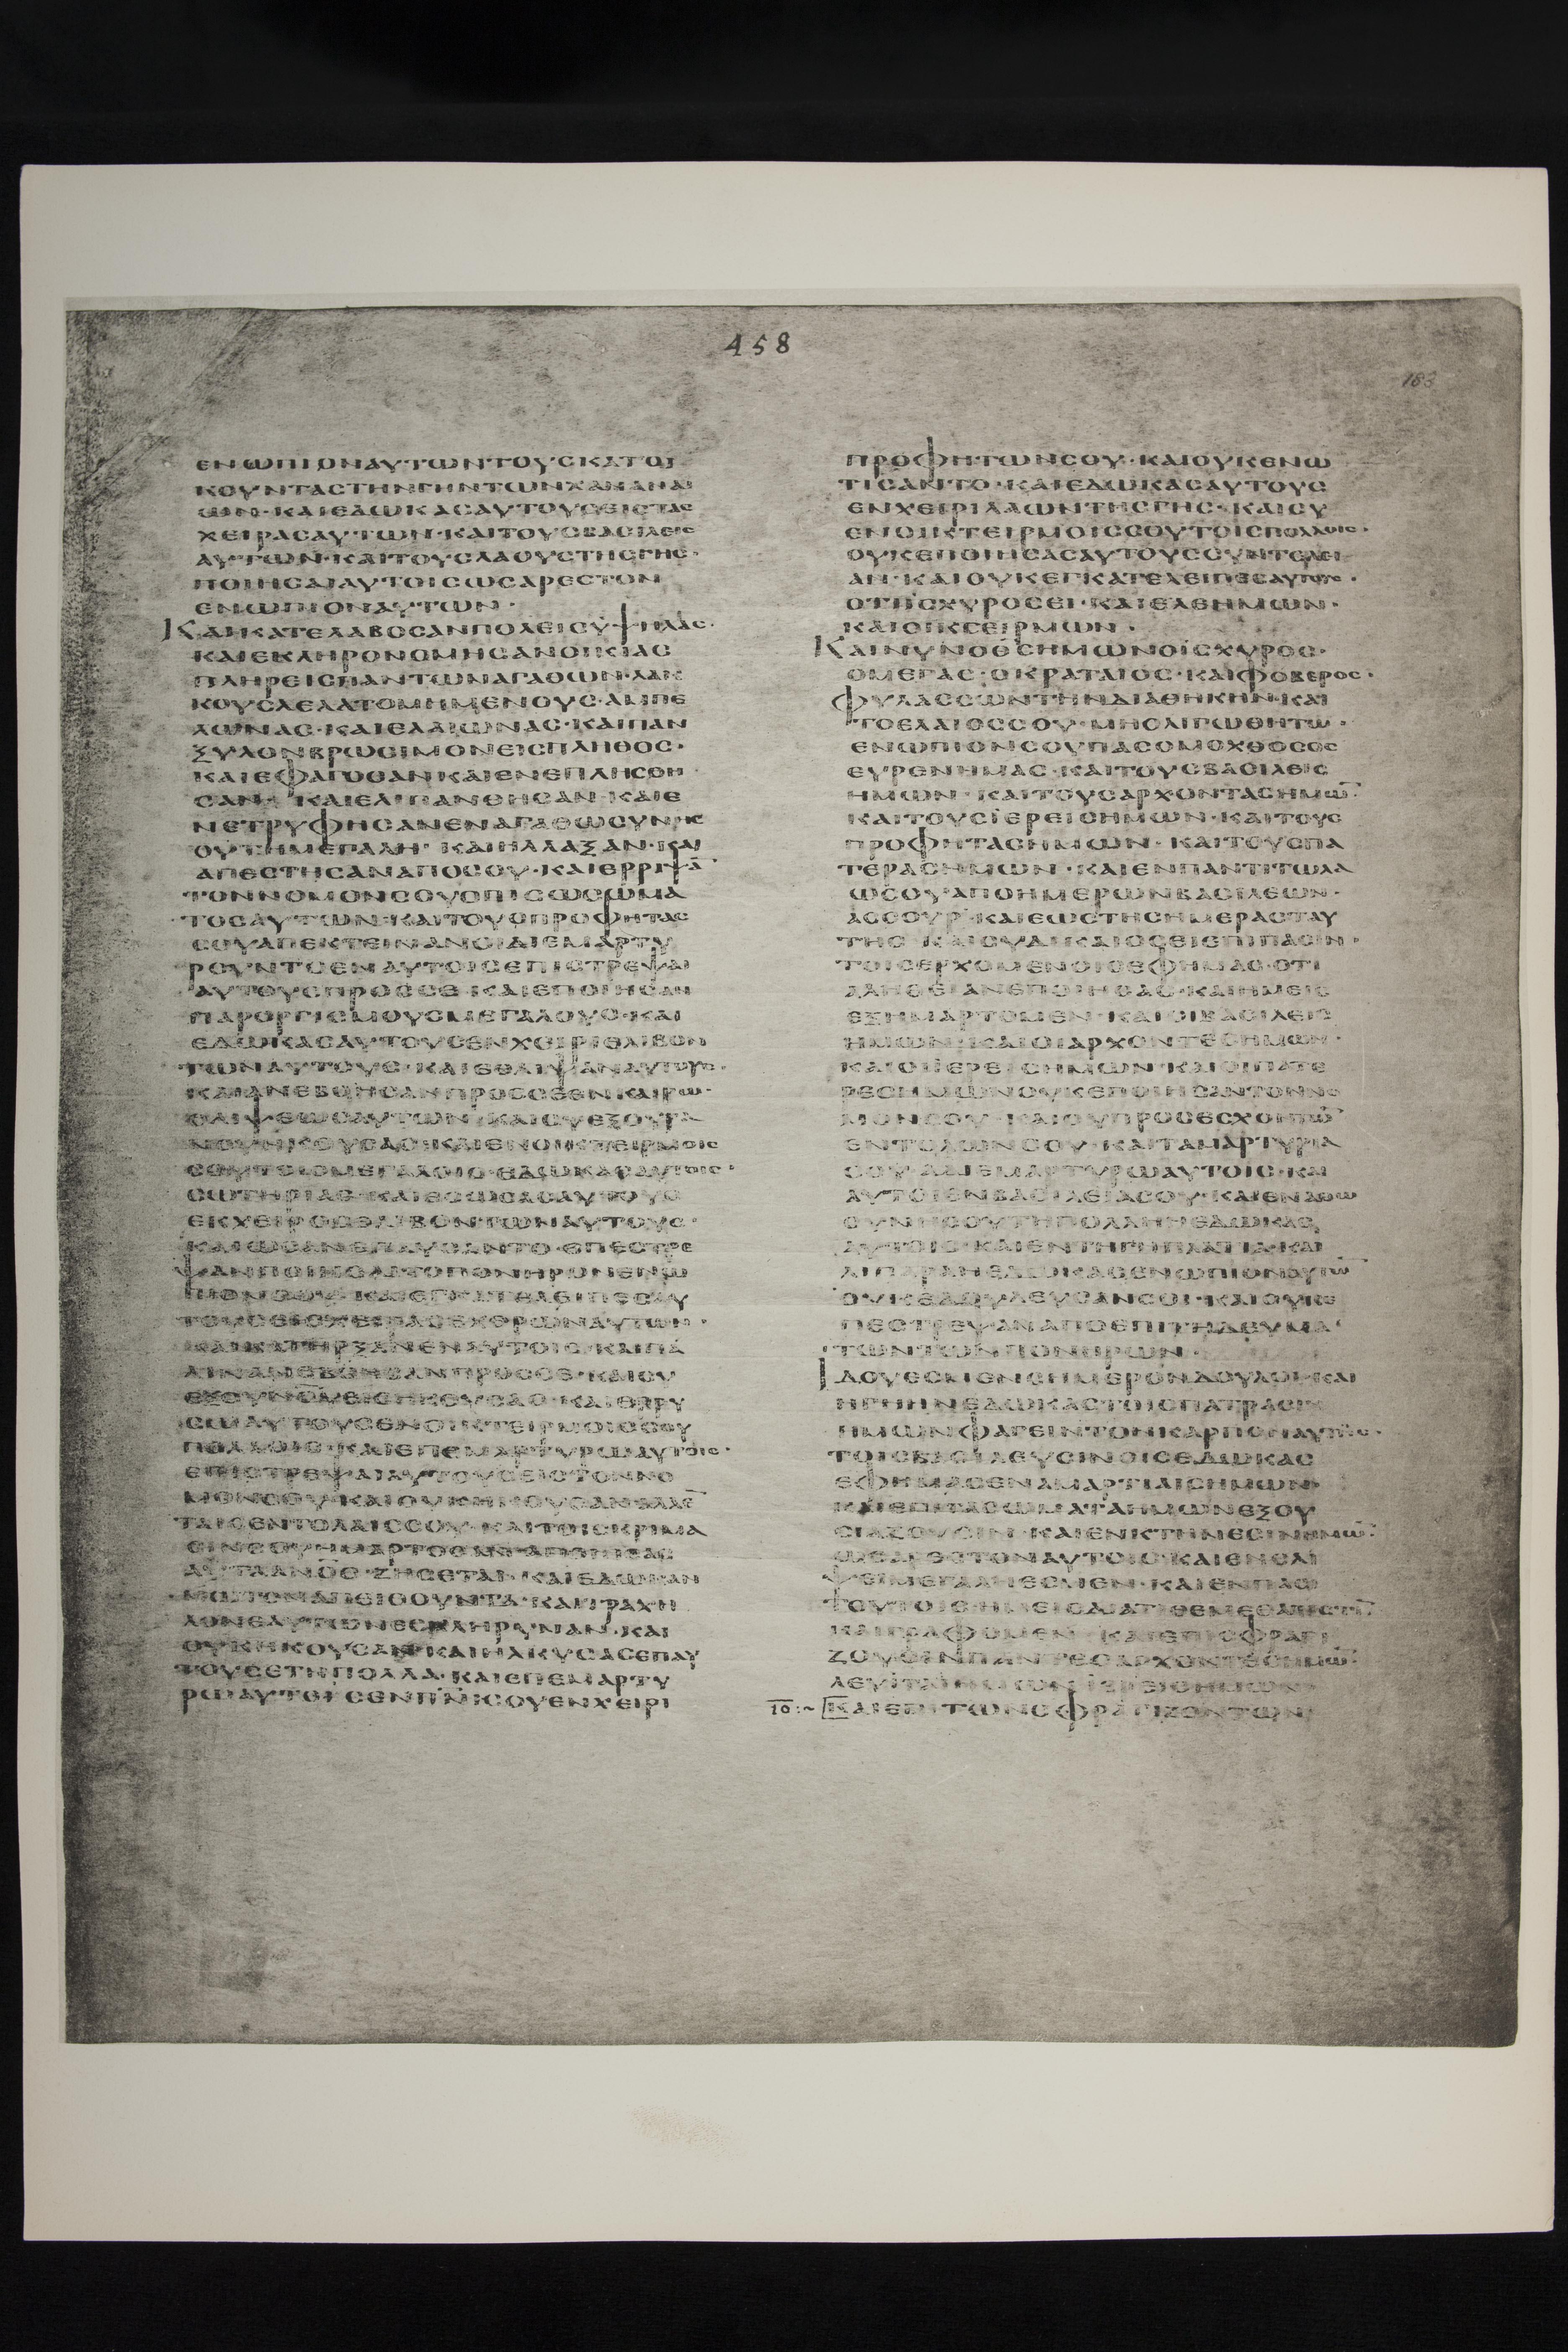 458
183
ΕΝΩΠΙΟΝΑΥΤΩΝΤΟΥΣΚΑΤΟΙ
ΚΟΥΝΤΑΣΤΗΝΓΗΝΤΩΝΧΑΝΑΝΑΙ
ΩΝ·ΚΑΙΕΔΩΚΑΣΑΥΤΟΥΣΕΙΣΤΑΣ
ΧΕΙΡΑΣΑΥΤΩΝ·ΚΑΙΤΟΥΣΒΑΣΙΛΕΙΣ
ΑΥΤΩΝ·ΚΑΙΤΟΥΣΛΑΟΥΣΤΗΣΓΗΣ·
ΠΟΙΗΣΑΙΑΥΤΟΙΣΩΣΑΡΕΣΤΟΝ
ΕΝΩΠΙΟΝΑΥΤΩΝ·
ΚΑΙΚΑΤΕΛΑΒΟΣΑΝΠΟΛΕΙΣΥΨΗΛΑΣ·
ΚΑΙΕΚΛΗΡΟΝΟΜΗΣΑΝΟΙΚΙΑΣ
ΠΛΗΡΕΙΣΠΑΝΤΩΝΑΓΑΘΩΝ·ΛΑΚ
ΚΟΥΣΛΕΛΑΤΟΜΗΜΕΝΟΥΣ·ΑΜΠΕ
ΛΩΝΑΣ·ΚΑΙΕΛΑΙΩΝΑΣ·ΚΑΙΠΑΝ
ΞΥΛΟΝΒΡΩΣΙΜΟΝΕΙΣΠΛΗΘΟΣ·
ΚΑΙΕΦΑΓΟΣΑΝΚΑΙΕΝΕΠΛΗΣΘΗ
ΣΑΝ·ΚΑΙΕΛΙΠΑΝΘΗΣΑΝ·ΚΑΙΕ
ΝΕΤΡΥΦΗΣΑΝΕΝΑΓΑΘΩΣΥΝΗ
ΣΟΥΤΗΜΕΓΑΛΗ·ΚΑΙΗΛΛΑΞΑΝ·ΚΑΙ
ΑΠΕΣΤΗΣΑΝΑΠΟΣΟΥ·ΚΑΙΕΡΡΙΨΑ̅
ΤΟΝΝΟΜΟΝΣΟΥΟΠΙΣΩΣΩΜΑ
ΤΟΣΑΥΤΩΝ·ΚΑΙΤΟΥΣΠΡΟΦΗΤΑΣ
ΣΟΥΑΠΕΚΤΕΙΝΑΝΟΙΔΙΕΜΑΡΤΥ
ΡΟΥΝΤΟΕΝΑΥΤΟΙΣΕΠΙΣΤΡΕΨΑΙ
ΑΥΤΟΥΣΠΡΟΣΣΕ·ΚΑΙΕΠΟΙΗΣΑΝ
ΠΑΡΟΡΓΙΣΜΟΥΣΜΕΓΑΛΟΥΣ·ΚΑΙ
ΕΔΩΚΑΣΑΥΤΟΥΣΕΝΧΕΙΡΙΘΛΙΒΟΝ
ΤΩΝΑΥΤΟΥΣ·ΚΑΙΕΘΛΙΨΑΝΑΥΤΟΥΣ·
ΚΑΙΑΝΕΒΟΗΣΑΝΠΡΟΣΣΕΕΝΚΑΙΡΩ
ΘΛΙΨΕΩΣΑΥΤΩΝ·ΚΑΙΣΥΕΞΟΥΡΑ
ΝΟΥΗΚΟΥΣΑΣ·ΚΑΙΕΝΟΙΚΤΕΙΡΜΟΙΣ
ΣΟΥΤΟΙΣΜΕΓΑΛΟΙΣ·ΕΔΩΚΑΣΑΥΤΟΙΣ·
ΣΩΤΗΡΙΑΣ·ΚΑΙΕΣΩΣΑΣΑΥΤΟΥΣ
ΕΚΧΕΙΡΟΣΘΛΙΒΟΝΤΩΝΑΥΤΟΥΣ·
ΚΑΙΩΣΑΝΕΠΑΥΣΑΝΤΟ·ΕΠΕΣΤΡΕ
ΨΑΝΠΟΙΗΣΑΙΤΟΠΟΝΗΡΟΝΕΝΩ
ΠΙΟΝΣΟΥ·ΚΑΙΕΓΚΑΤΕΛΕΙΠΕΣΑΥ
ΤΟΥΣΕΙΣΧΕΙΡΑΣΕΧΘΡΩΝΑΥΤΩΝ·
ΚΑΙΚΑΤΗΡΞΑΝΕΝΑΥΤΟΙΣ·ΚΑΙΠΑ
ΛΙΝΑΝΕΒΟΗΣΑΝΠΡΟΣΣΕ·ΚΑΙΣΥ
ΕΞΟΥΝΟΥΕΙΣΗΚΟΥΣΑΣ·ΚΑΙΕΡΡΥ
ΣΩΑΥΤΟΥΣΕΝΟΙΚΤΕΙΡΜΟΙΣΣΟΥ
ΠΟΛΛΟΙΣ·ΚΑΙΕΠΕΜΑΡΤΥΡΩΑΥΤΟΙΣ·
ΕΠΙΣΤΡΕΨΑΙΑΥΤΟΥΣΕΙΣΤΟΝΝΟ
ΜΟΝΣΟΥ·ΚΑΙΟΥΚΗΚΟΥΣΑΝ
ΤΑΙΣΕΝΤΟΛΑΙΣΣΟΥ·ΚΑΙΤΟΙΣΚΡΙΜΑ
ΣΙΝΣΟΥΗΜΑΡΤΟΣΑΝ
ΖΗΣΕΤΑΙ·ΚΑΙΕΔΩΚΑΝ
ΝΩΤΟΝΑΠΕΙΘΟΥΝΤΑ·ΚΑΙΤΡΑΧΗ
ΛΟΝΕΑΥΤΩΝΕΣΚΛΗΡΥΝΑΝ·ΚΑΙ
ΟΥΚΗΚΟΥΣΑΝ·ΚΑΙΗΛΚΥΣΑΣΕΠΑΥ
ΤΟΥΣΕΤΗΠΟΛΛΑ·ΚΑΙΕΠΕΜΑΡΤΥ
ΡΩΑΥΤΟΙΣΕΝΠΝΙΣΟΥΕΝΧΕΙΡΙ
ΠΡΟΦΗΤΩΝΣΟΥ·ΚΑΙΟΥΚΕΝΩ
ΤΙΣΑΝΤΟ·ΚΑΙΕΔΩΚΑΣΑΥΤΟΥΣ
ΕΝΧΕΙΡΙΛΑΩΝΤΗΣΓΗΣ·ΚΑΙΣΥ
ΕΝΟΙΚΤΕΙΡΜΟΙΣΣΟΥΤΟΙΣΠΟΛΛΟΙΣ·
ΟΥΚΕΠΟΙΗΣΑΣΑΥΤΟΥΣΣΥΝΤΕΛΕΙ
ΑΝ·ΚΑΙΟΥΚΕΓΚΑΤΕΛΕΙΠΕΣΑΥΤΟΥΣ·
ΟΤΙΙΣΧΥΡΟΣΕΙ·ΚΑΙΕΛΕΗΜΩΝ·
ΚΑΙΟΙΚΤΕΙΡΜΩΝ·
ΚΑΙΝΥΝΟΘΣΗΜΩΝΟΙΣΧΥΡΟΣ·
ΟΜΕΓΑΣ·ΟΚΡΑΤΑΙΟΣ·ΚΑΙΦΟΒΕΡΟΣ·
ΦΥΛΑΣΣΩΝΤΗΝΔΙΑΘΗΚΗΝ·ΚΑΙ
ΤΟΕΛΑΙΟΣΣΟΥ·ΜΗΟΛΙΓΩΘΗΤΩ·
ΕΝΩΠΙΟΝΣΟΥΠΑΣΟΜΟΧΘΟΣΟΣ
ΕΥΡΕΝΗΜΑΣ·ΚΑΙΤΟΥΣΒΑΣΙΛΕΙΣ
ΗΜΩΝ·ΚΑΙΤΟΥΣΑΡΧΟΝΤΑΣΗΜΩ̅·
ΚΑΙΤΟΥΣΙΕΡΕΙΣΗΜΩΝ·ΚΑΙΤΟΥΣ
ΠΡΟΦΗΤΑΣΗΜΩΝ·ΚΑΙΤΟΥΣΠΑ
ΤΕΡΑΣΗΜΩΝ·ΚΑΙΕΝΠΑΝΤΙΤΩΛΑ
ΩΣΟΥΑΠΟΗΜΕΡΩΝΒΑΣΙΛΕΩΝ·
ΑΣΣΟΥΡ·ΚΑΙΕΩΣΤΗΣΗΜΕΡΑΣΤΑΥ
ΤΗΣ·ΚΑΙΣΥΔΙΚΑΙΟΣΕΙΕΠΙΠΑΣΙΝ·
ΤΟΙΣΕΡΧΟΜΕΝΟΙΣΕΦΗΜΑΣ·ΟΤΙ
ΑΛΗΘΕΙΑΝΕΠΟΙΗΣΑΣ·ΚΑΙΗΜΕΙΣ
ΕΞΗΜΑΡΤΟΜΕΝ·ΚΑΙΟΙΒΑΣΙΛΕΙΣ
ΗΜΩΝ·ΚΑΙΟΙΑΡΧΟΝΤΕΣΗΜΩΝ·
ΚΑΙΟΙΙΕΡΕΙΣΗΜΩΝ·ΚΑΙΟΙΠΑΤΕ
ΡΕΣΗΜΩΝΟΥΚΕΠΟΙΗΣΑΝΤΟΝΝΟ
ΜΟΝΣΟΥ·ΚΑΙΟΥΠΡΟΣΕΣΧΟΝΤΩ̅
ΕΝΤΟΛΩΝΣΟΥ·ΚΑΙΤΑΜΑΡΤΥΡΙΑ
ΣΟΥΑΔΙΕΜΑΡΤΥΡΩΑΥΤΟΙΣ·ΚΑΙ
ΑΥΤΟΙΕΝΒΑΣΙΛΕΙΑΣΟΥ·ΚΑΙΕΝΑΓΑΘΩ
ΣΥΝΗΣΟΥΤΗΠΟΛΛΗΗΕΔΩΚΑΣ
ΑΥΤΟΙΣ·ΚΑΙΕΝΤΗΓΗΠΛΑΤΙΑ·ΚΑΙ
ΛΙΠΑΡΑΗΕΔΩΚΑΣΕΝΩΠΙΟΝΑΥΤΩ̅
ΟΥΚΕΔΟΥΛΕΥΣΑΝΣΟΙ·ΚΑΙΟΥΚΕ
ΠΕΣΤΡΕΨΑΝΑΠΟΕΠΙΤΗΔΕΥΜΑ
ΤΩΝΤΩΝΠΟΝΗΡΩΝ·
ΙΔΟΥΕΣΜΕΝΣΗΜΕΡΟΝΔΟΥΛΟΙ·ΚΑΙ
ΗΓΗΗΝΕΔΩΚΑΣΤΟΙΣΠΑΤΡΑΣΙΝ
ΗΜΩΝΦΑΓΕΙΝΤΟΝΚΑΡΠΟΝΑΥΤΗΣ·
ΤΟΙΣΒΑΣΙΛΕΥΣΙΝΟΙΣΕΔΩΚΑΣ
ΕΦΗΜΑΣΕΝΑΜΑΡΤΙΑΙΣΗΜΩΝ·
ΚΑΙΕΠΙΤΑΣΩΜΑΤΑΗΜΩΝΕΞΟΥ
ΣΙΑΖΟΥΣΙΝ·ΚΑΙΕΝΚΤΗΝΕΣΙΝΗΜΩ̅·
ΩΣΑΡΕΣΤΟΝΑΥΤΟΙΣ·ΚΑΙΕΝΘΛΙ
ΨΕΙΜΕΓΑΛΗΕΣΜΕΝ·ΚΑΙΕΝΠΑΣΙ
ΤΟΥΤΟΙΣΗΜΕΙΣΔΙΑΤΙΘΕΜΕΘΑΠΙΣΤΙ̅
ΚΑΙΓΡΑΦΟΜΕΝ·ΚΑΙΕΠΙΣΦΡΑΓΙ
ΖΟΥΣΙΝΠΑΝΤΕΣΑΡΧΟΝΤΕΣΗΜΩ̅·
ΛΕΥΙΤΑΙΗΜΩΝΙΕΡΕΙΣΗΜΩΝ
10:~ ΚΑΙΕΠΙΤΩΝΣΦΡΑΓΙΖΟΝΤΩΝ